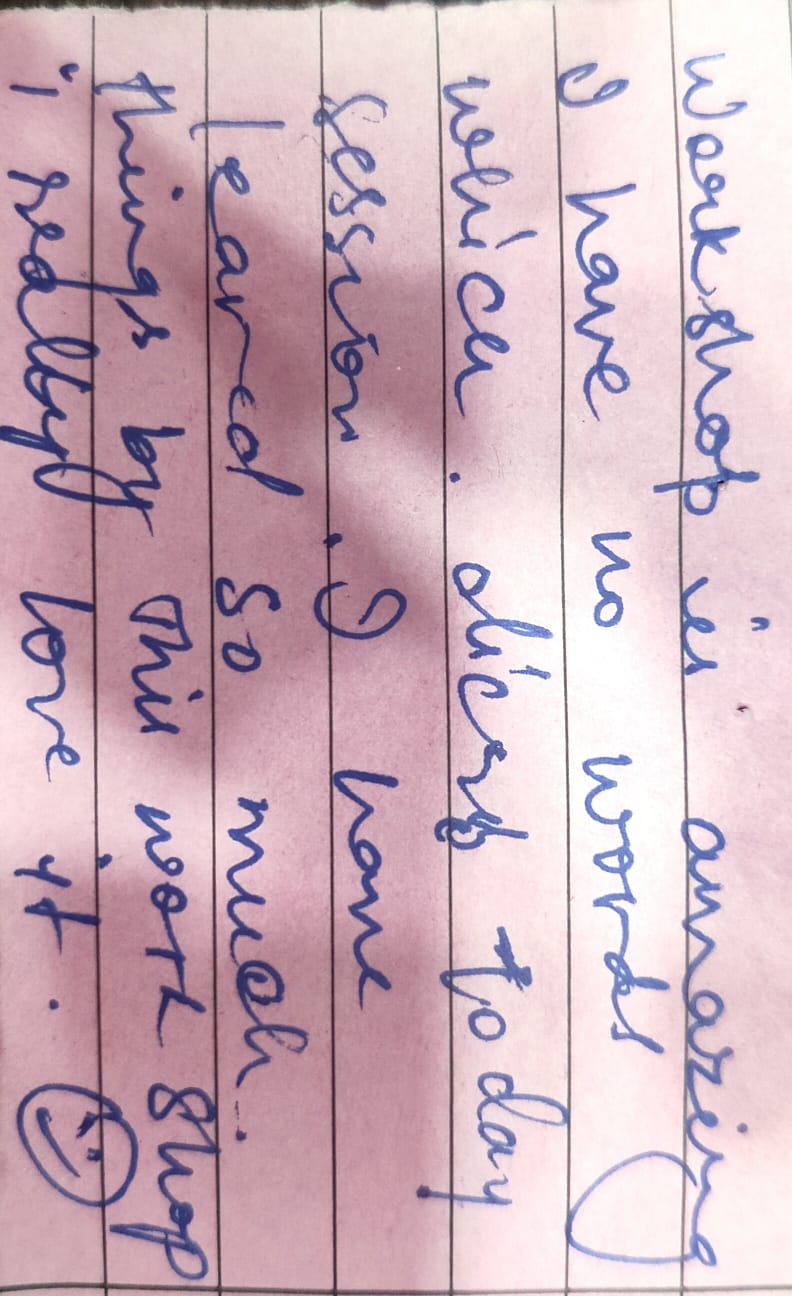 Workshop is amazing
I have no words
which. today
session. I have
leared so much.
things by this work shop
i really love it. ☺